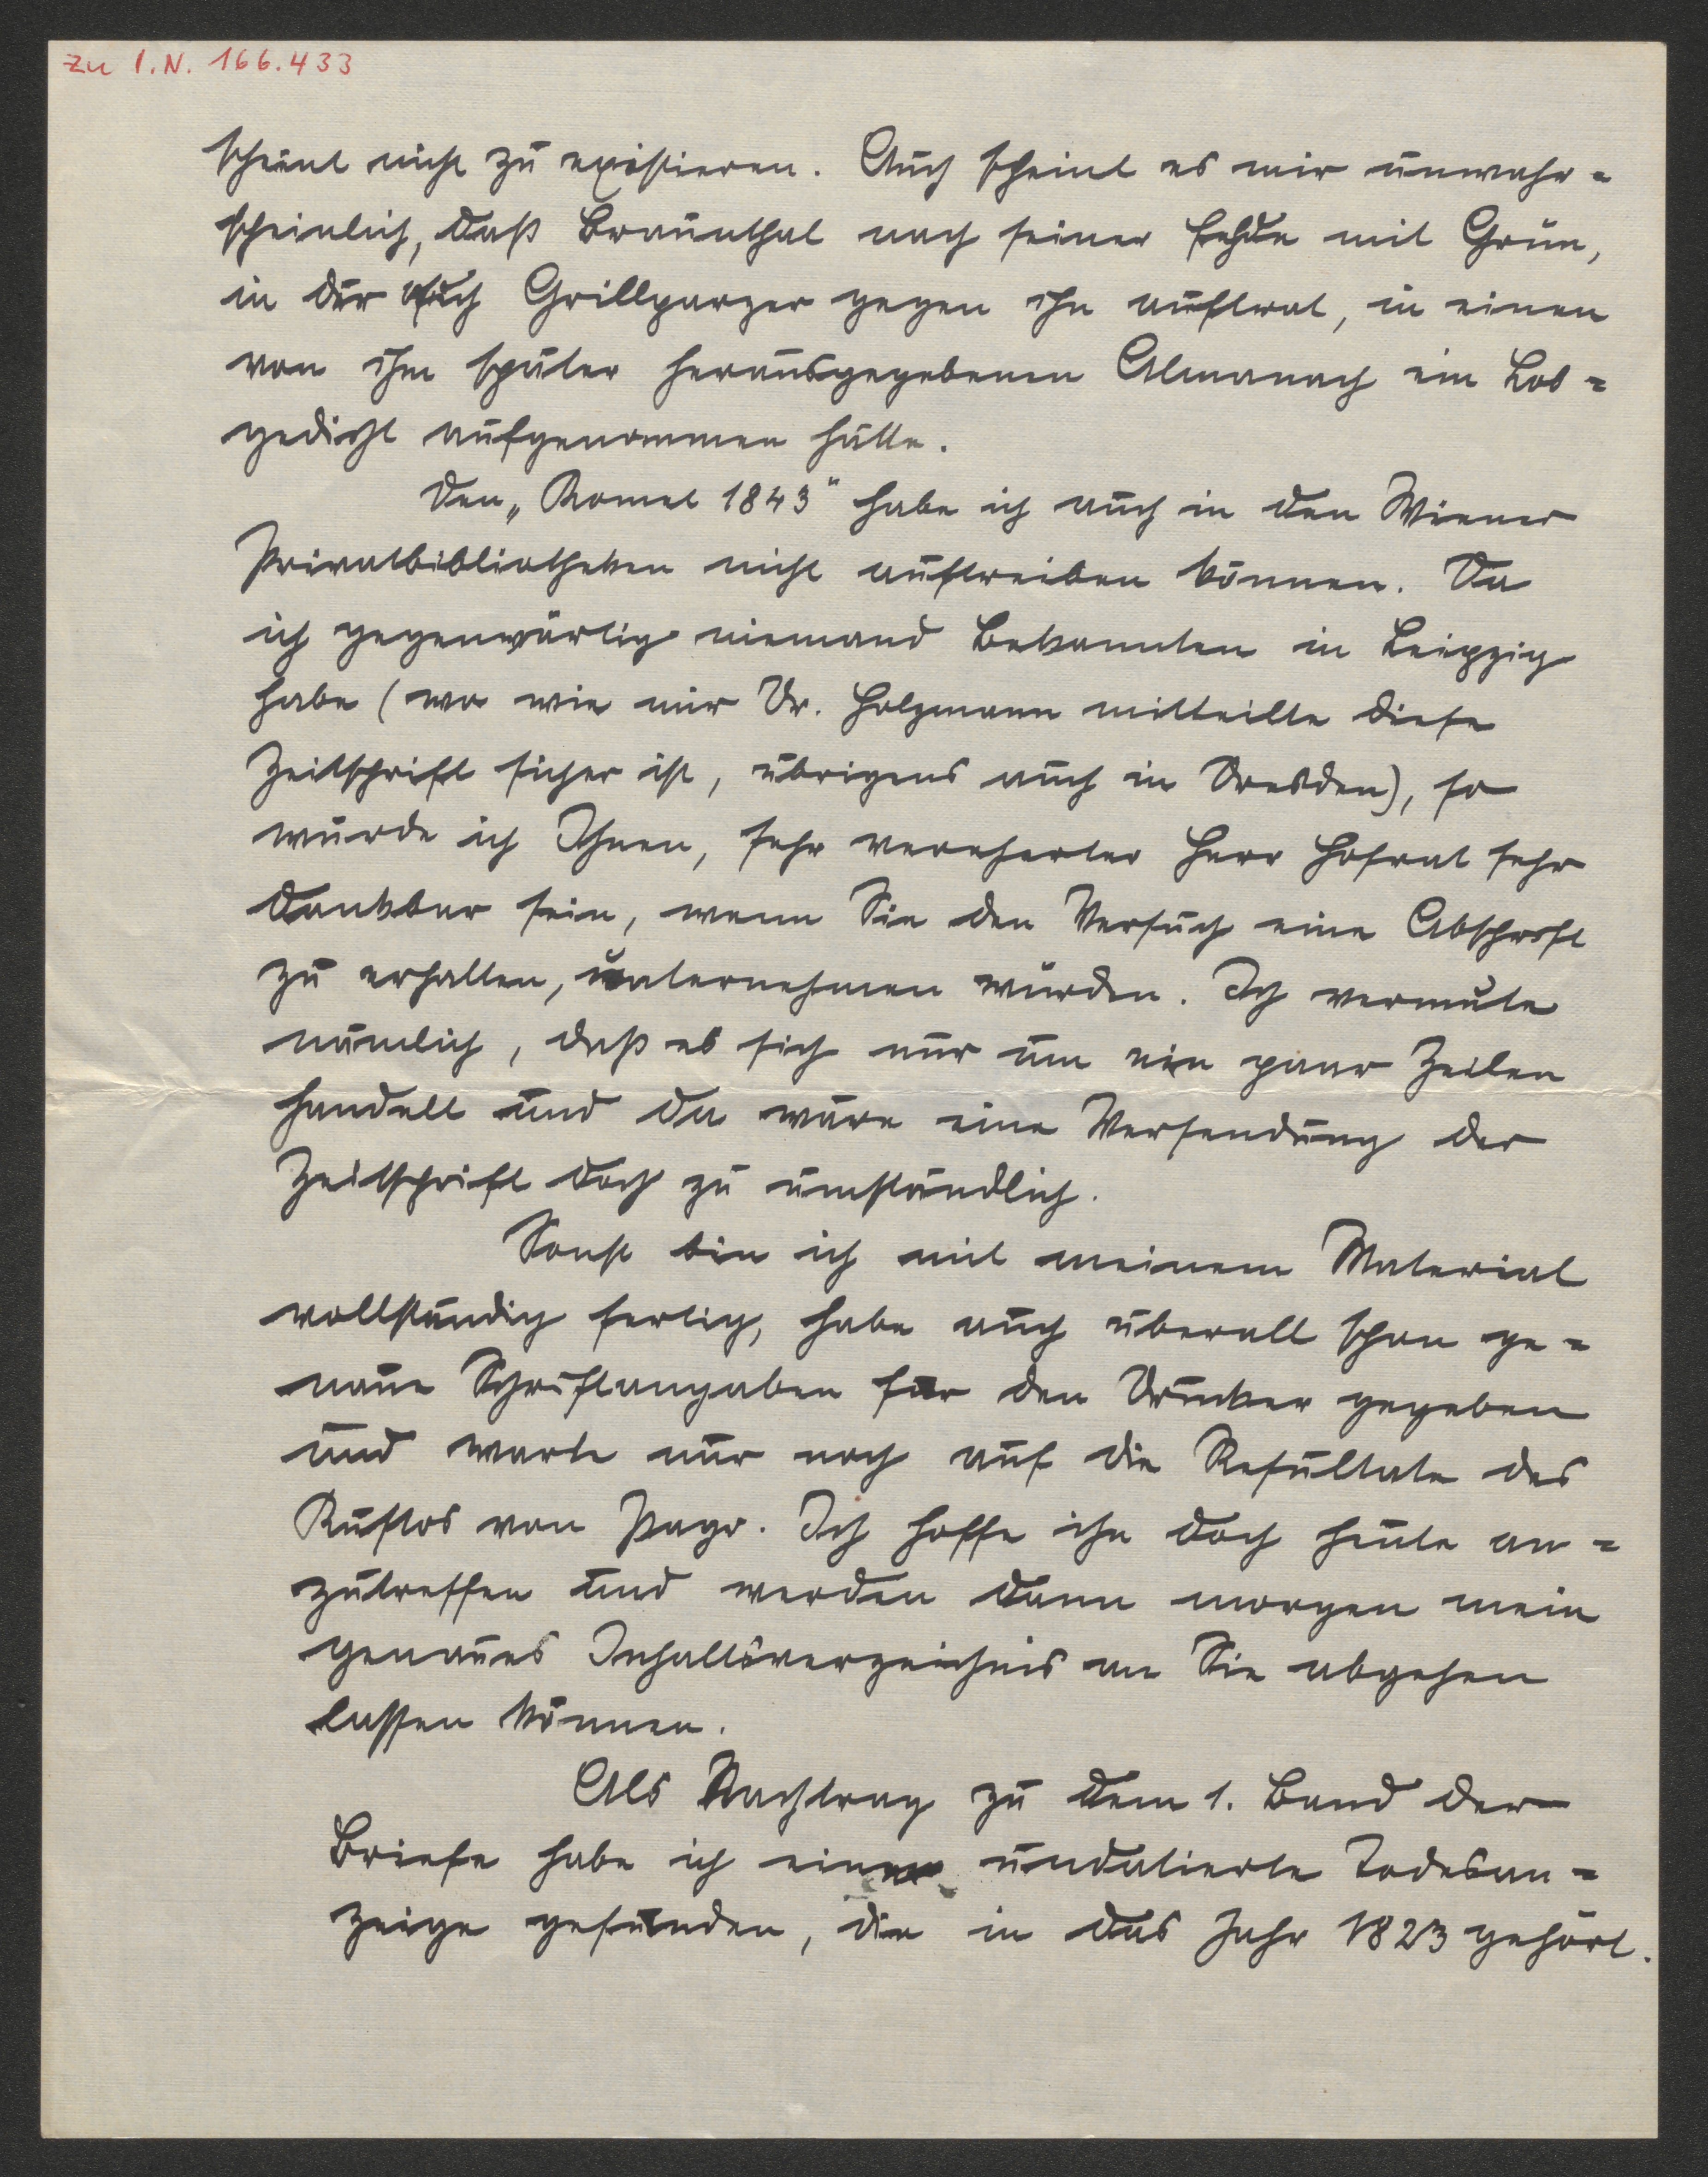 zu I.N. 166.433
scheint nicht zu existieren. Auch scheint es mir unwahr=
scheinlich, daß Braunthal nach seiner Fehde mit Grün,
in der auch Grillparzer gegen ihn auftrat, in einen
von ihm später herausgegebenen Almanach ein Lob=
gedicht aufgenommen hätte.
Den „Komet 1843" habe ich auch in den Wiener
Privatbibliotheken nicht auftreiben können. Da
ich gegenwärtig niemand Bekannten in Leipzig
habe (wo wie mir Dr. Holzmann mitteilte diese
Zeitschrift sicher ist, übrigens auch in Dresden), so
würde ich Ihnen, sehr verehrter Herr Hofrat sehr
dankbar sein, wenn Sie den Versuch eine Abschrift
zu erhalten, unternehmen würden. Ich vermute
nämlich, daß es sich nur um ein paar Zeilen
handelt und da wäre eine Versendung der
Zeitschrift doch zu umständlich.
Sonst bin ich mit meinem Material
vollständig fertig, habe auch überall schon ge=
naue Schriftangaben für den Drucker gegeben
und warte nur noch auf die Resultate des
Kustos von Payer. Ich hoffe ihn doch heute an=
zutreffen und werden dann morgen mein
genaues Inhaltsverzeichnis an Sie abgehen
lassen können.
Als Nachtrag zu dem 1. Band der
Briefe habe ich eine undatierte Todesan=
zeige gefunden, die in das Jahr 1823 gehört.